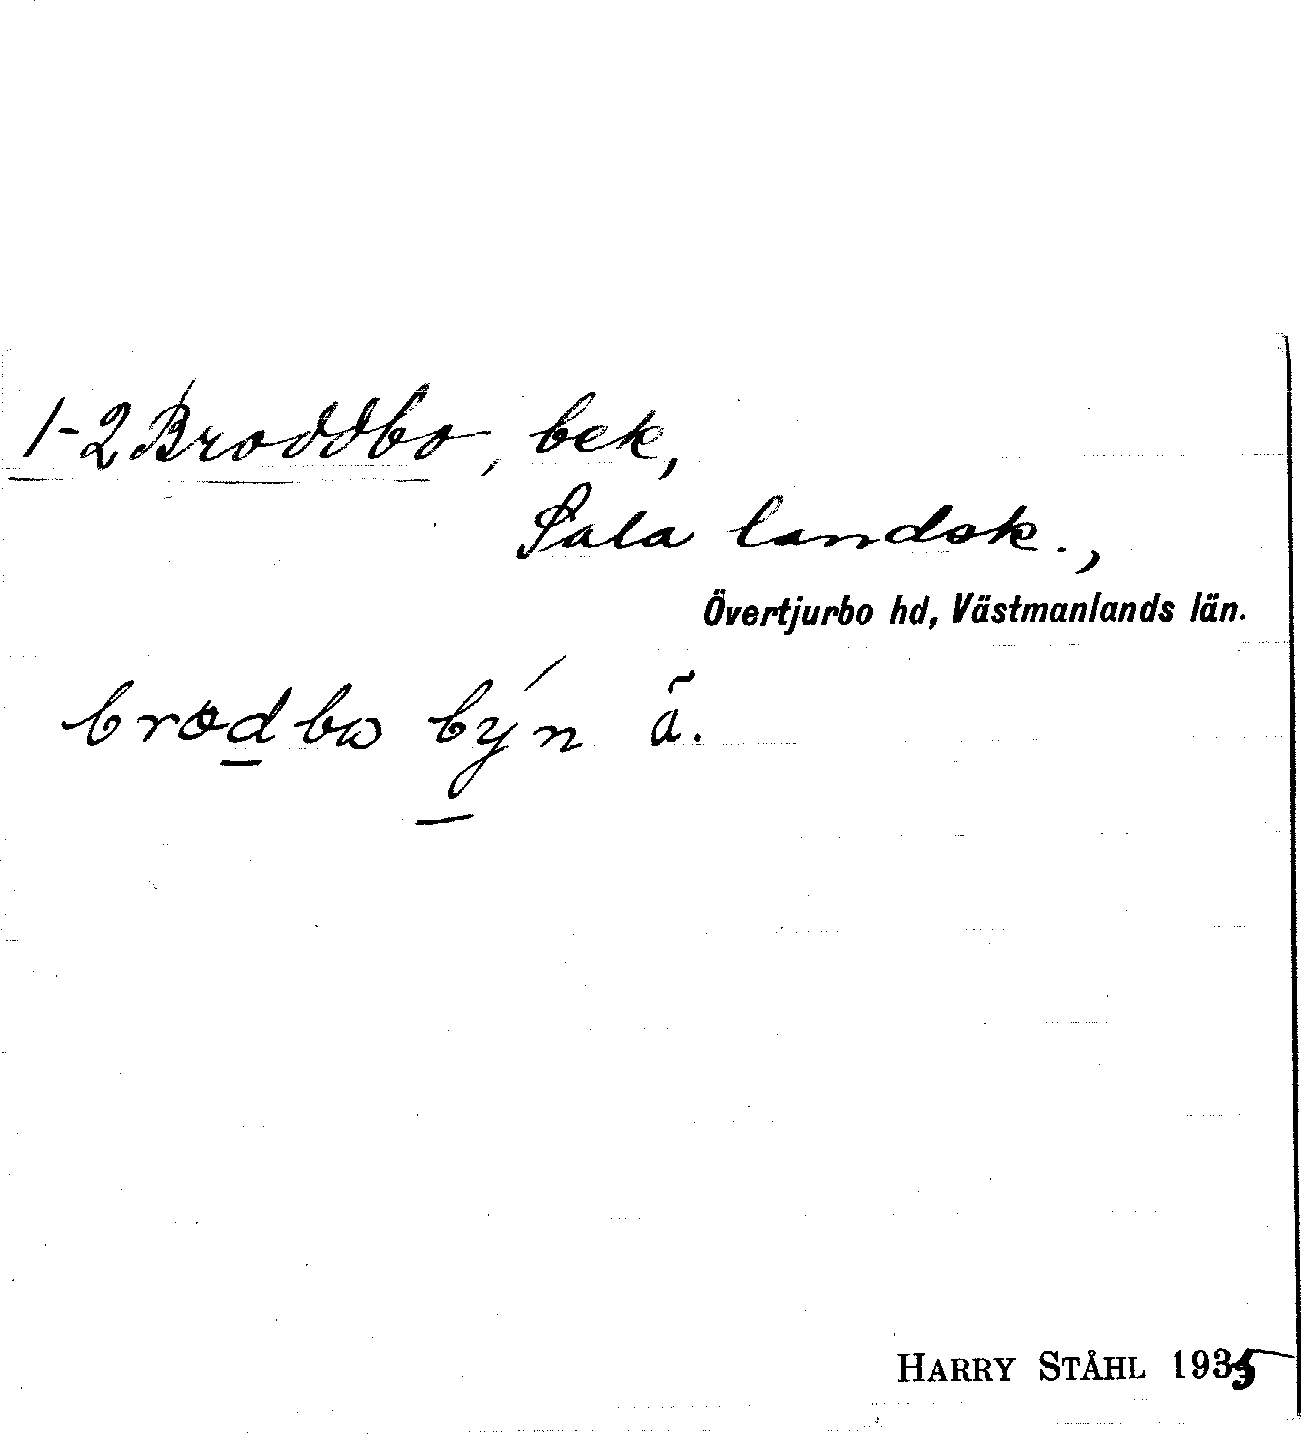 1-2 Broddbo, bek,
Sala landsk.,
Övertjurbo hd, Västmanlands län.
brodbω býn ã.
HARRY STÅHL 1935